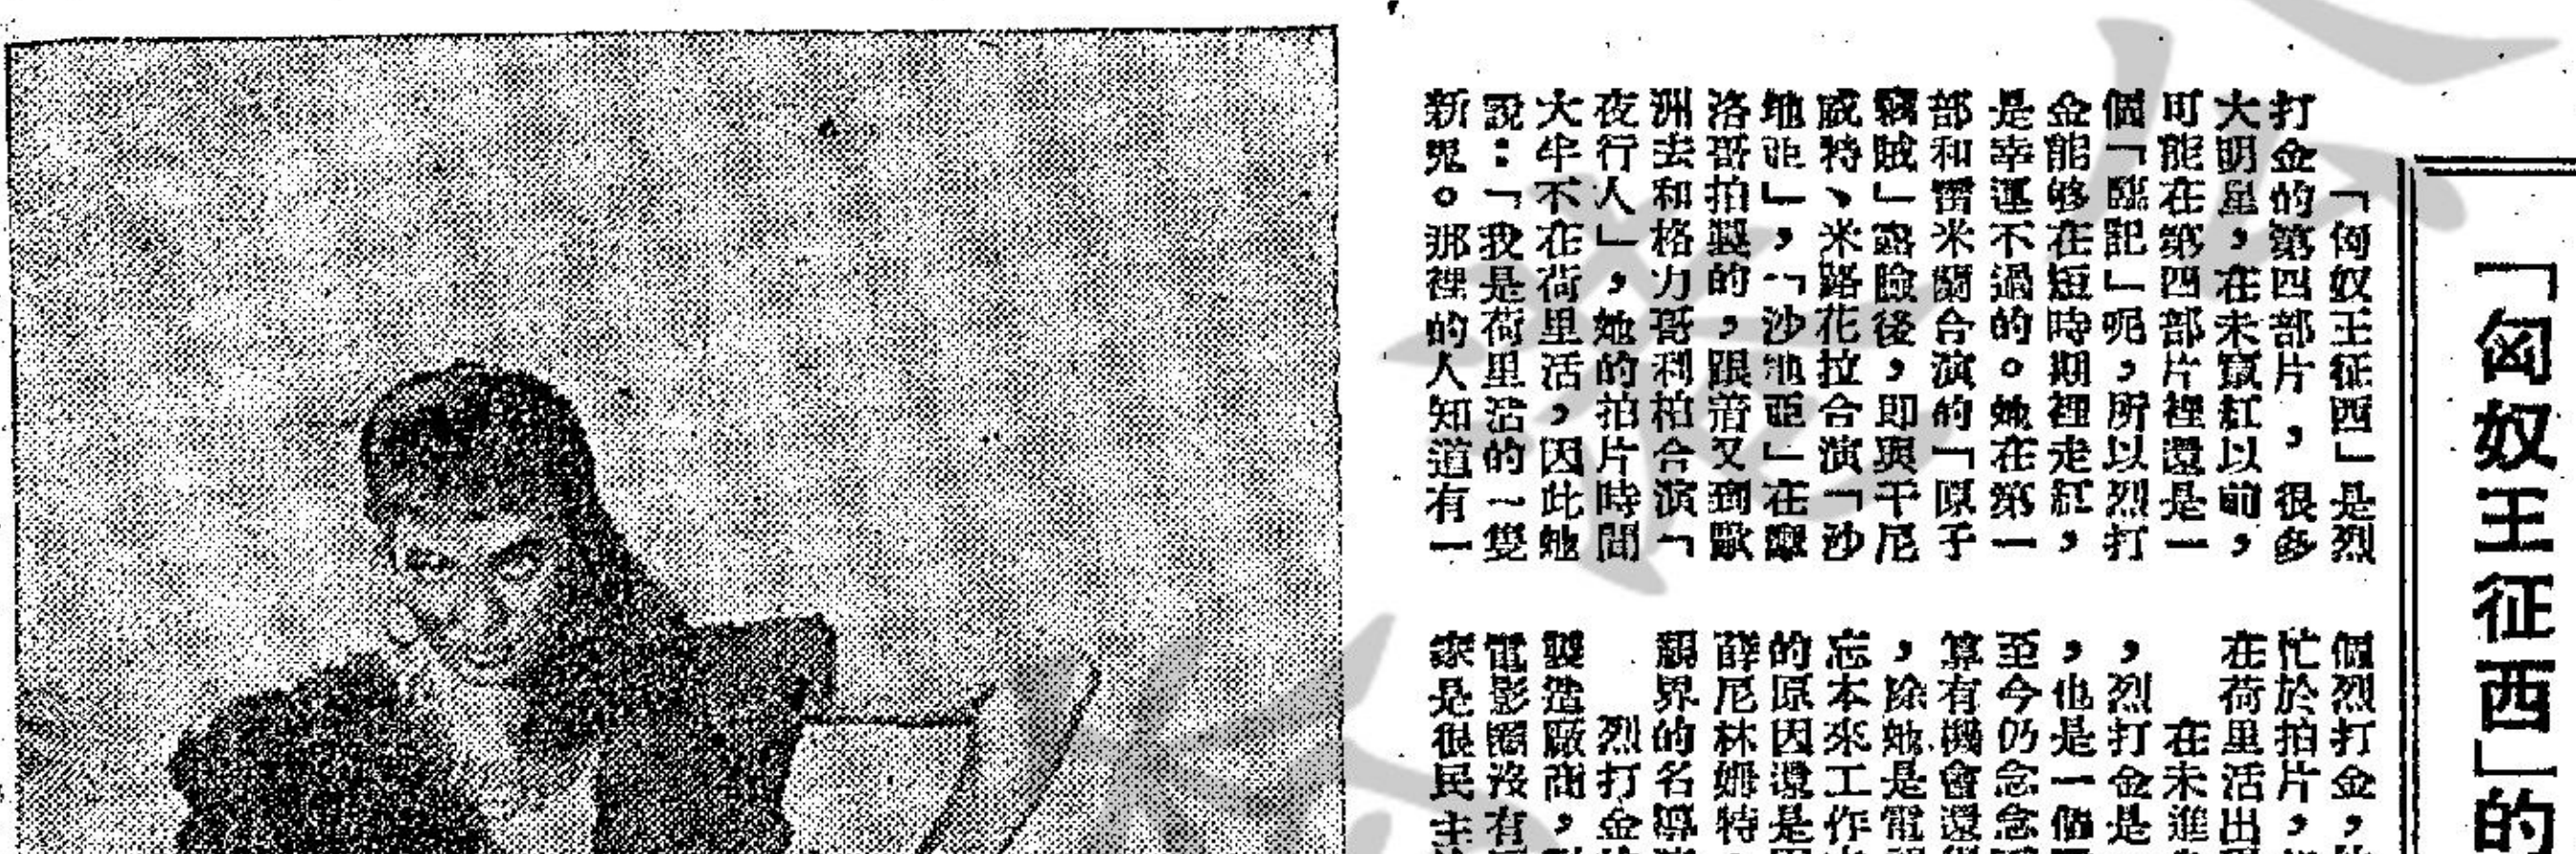 「匈奴王征西」的
「匈奴王征西」是烈
打金的第四部片，很多
大明星，在未竄紅以前，
可能在第四部片裡還是一
個「臨記」呢，所以烈打
金能够在短時期裡走紅，
是幸運不過的。她在第一
部和雷米蘭合演的「原子
竊賊」露臉後，即與干尼
威特、米路花拉合演「沙
地亞」，「沙地亞」在摩
洛哥拍製的，跟着又到歐
洲去和格力哥利柏合演「
夜行人」，她的拍片時間
大半不在荷里活，因此她
說：「我是荷里活的一隻
新鬼。那裡的人知道有一
個烈打金，
忙於拍片，
在荷里活出
在未進
，烈打金是
，也是一個
至今仍念念
算有機會還
，除她是電
忘本來工作
的原因還是
薛尼林姆特
劇界的名導
烈打金
製造廠商，
電影圈沒有
家是很民主